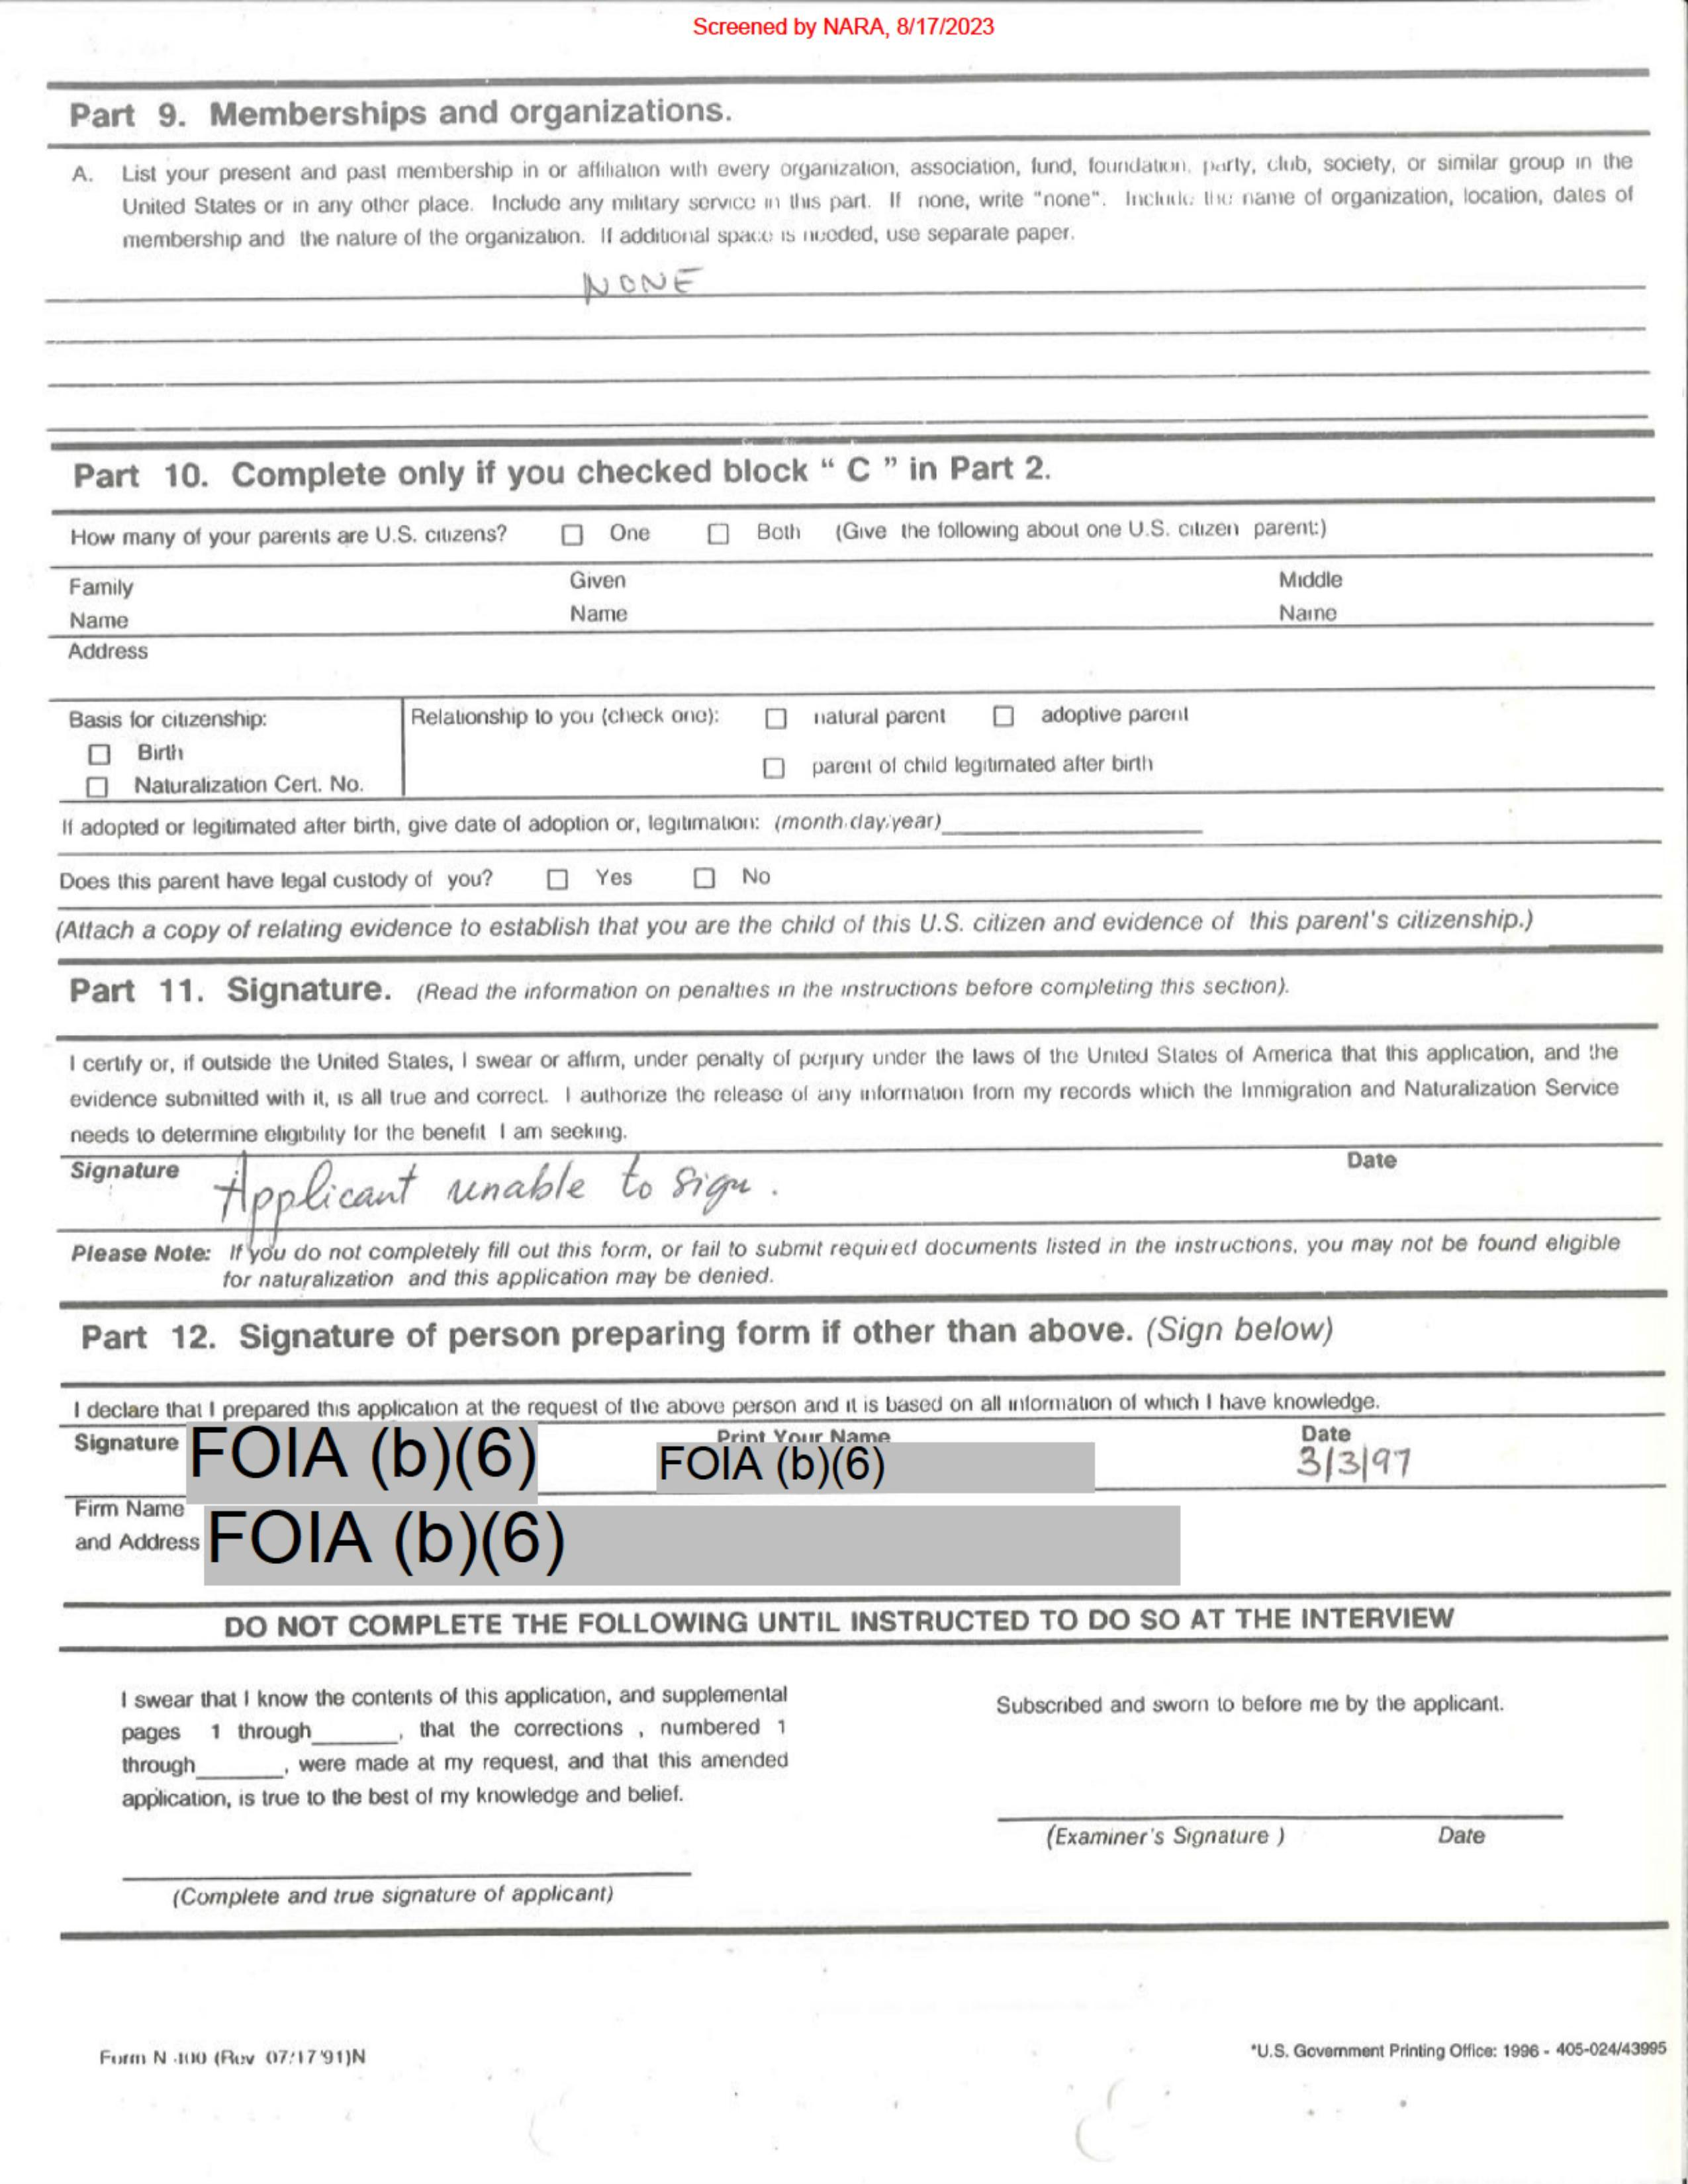 Screened by NARA, 8/17/2023
Part 9. Memberships and organizations.
A. List your present and past membership in or affiliation with every organization, association, fund, foundation, party, club, society, or similar group in the
United States or in any other place. Include any military service in this part. If none, write "none". Include the name of organization, location, dates of
membership and the nature of the organization. If additional space is needed, use separate paper.
NONE
Part 10. Complete only if you checked block " C " in Part 2.
How many of your parents are U.S. citizens? ☐ One ☐ Both (Give the following about one U.S. citizen parent:)
Family Given Middle
Name Name Name
Address
Basis for citizenship: Relationship to you (check one): ☐ natural parent ☐ adoptive parent
☐ Birth
☐ parent of child legitimated after birth
☐ Naturalization Cert. No.
If adopted or legitimated after birth, give date of adoption or, legitimation: (month,day,year)
Does this parent have legal custody of you? ☐ Yes ☐ No
(Attach a copy of relating evidence to establish that you are the child of this U.S. citizen and evidence of this parent's citizenship.)
Part 11. Signature. (Read the information on penalties in the instructions before completing this section).
I certify or, if outside the United States, I swear or affirm, under penalty of perjury under the laws of the United States of America that this application, and the
evidence submitted with it, is all true and correct. I authorize the release of any information from my records which the Immigration and Naturalization Service
needs to determine eligibility for the benefit I am seeking.
Signature Date
Applicant unable to sign.
Please Note: If you do not completely fill out this form, or fail to submit required documents listed in the instructions, you may not be found eligible
for naturalization and this application may be denied.
Part 12. Signature of person preparing form if other than above. (Sign below)
I declare that I prepared this application at the request of the above person and it is based on all information of which I have knowledge.
Signature FOIA (b)(6) Print Your Name FOIA (b)(6) Date
3/3/97
Firm Name
and Address FOIA (b)(6)
DO NOT COMPLETE THE FOLLOWING UNTIL INSTRUCTED TO DO SO AT THE INTERVIEW
I swear that I know the contents of this application, and supplemental
pages 1 through_______, that the corrections , numbered 1
through_______, were made at my request, and that this amended
application, is true to the best of my knowledge and belief.
Subscribed and sworn to before me by the applicant.
(Examiner's Signature ) Date
(Complete and true signature of applicant)
Form N-400 (Rev 07/17/91)N
*U.S. Government Printing Office: 1996 - 405-024/43995